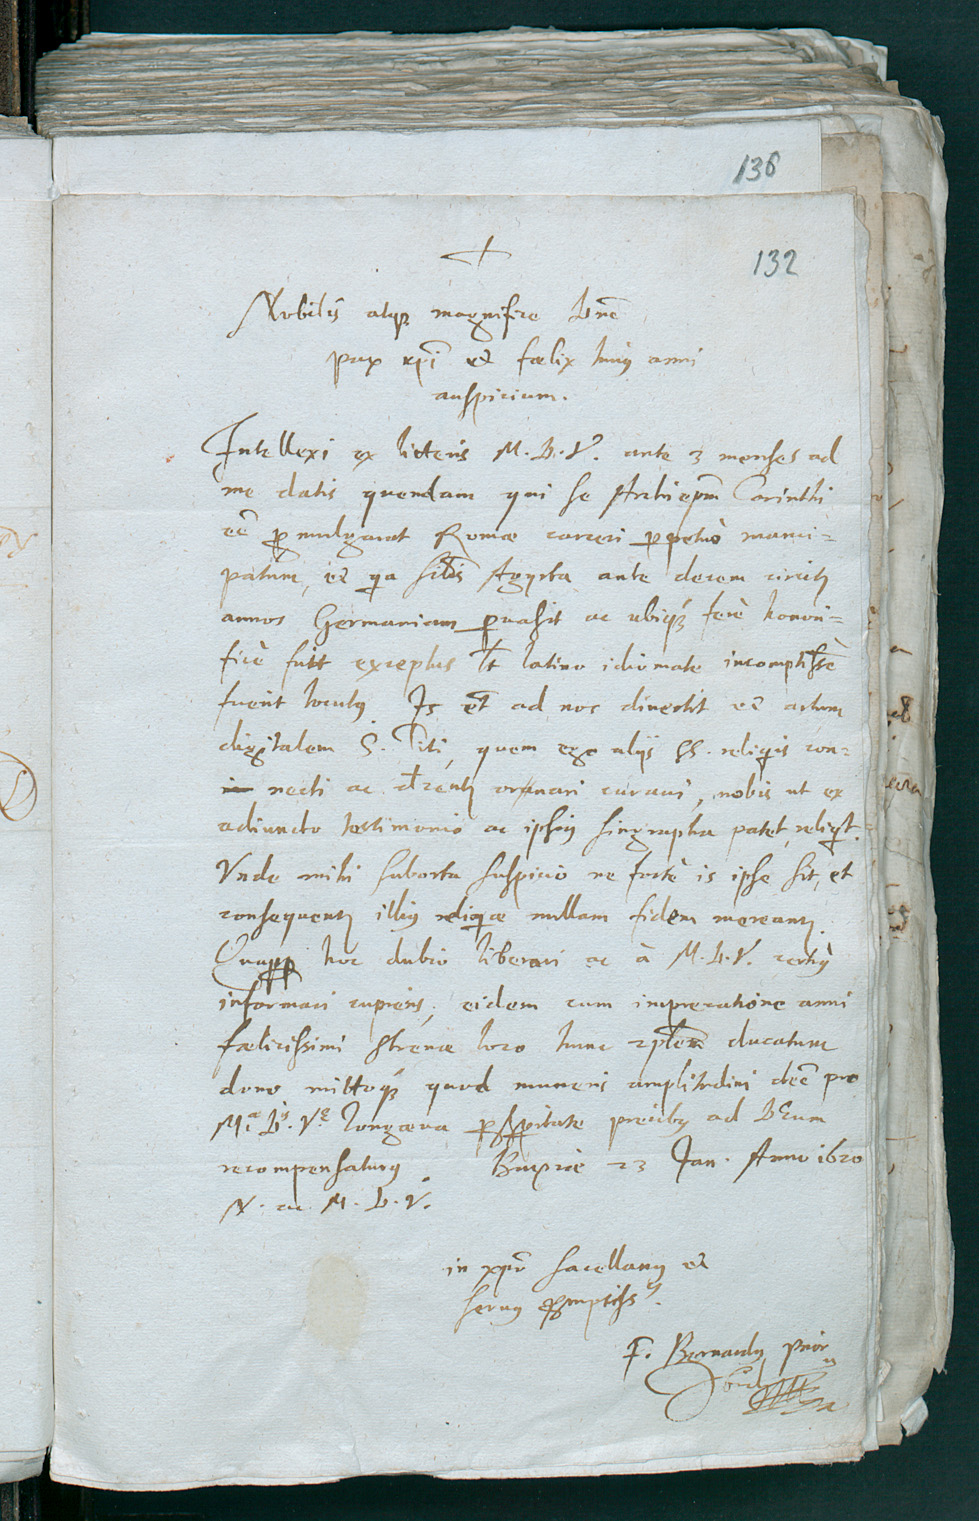 136
132
Nobilis atq; magnifice Dne
pax xpi et fœlix huiq anni
auspicium.
Intellexi ex litteris M. D. V. ante 3 menses ad
me datis quendam qui se Archiepm Corinthi
ee promulgarat Romæ carceri perpetuò manci=
patum, et qa Agyrta ante decem circitr
annos Germaniam puasit ac ubiq; ferè honori=
ficè exceptus latino idiomate incomptissè
fuerit locutq Is et ad nos divertit et
digitalem S. Titi, quem ego alijs SS. reliqijs con=
necti ac ornari curavi, nobis ut ex
adiuncto testimonio ac ipsiq singrapha patet, reliqit.
Unde mihi suborta suspicio ne fortè is ipse sit, et
consequentr illiq reliqiæ nullam fidem mereantr.
Quapp hoc dubio liberari ac à M. D. V. certiq
informari cupiens, eidem cum imprecatione anni
fælicissimi strenæ loco hunc ducatum
dono mittoq; quod muneris amplitudini deè pro
Ma D. V. longæva psperitate precibq ad Deum
recompensaturq 23 Jan. Anno 1620
N. ac M. D. V.
in xpo sacellanq et
servq promptissq.
F. Bernardq Prior